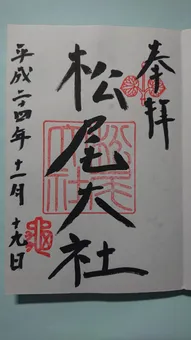 奉拝
松尾大社
平成二十四年十一月十九日